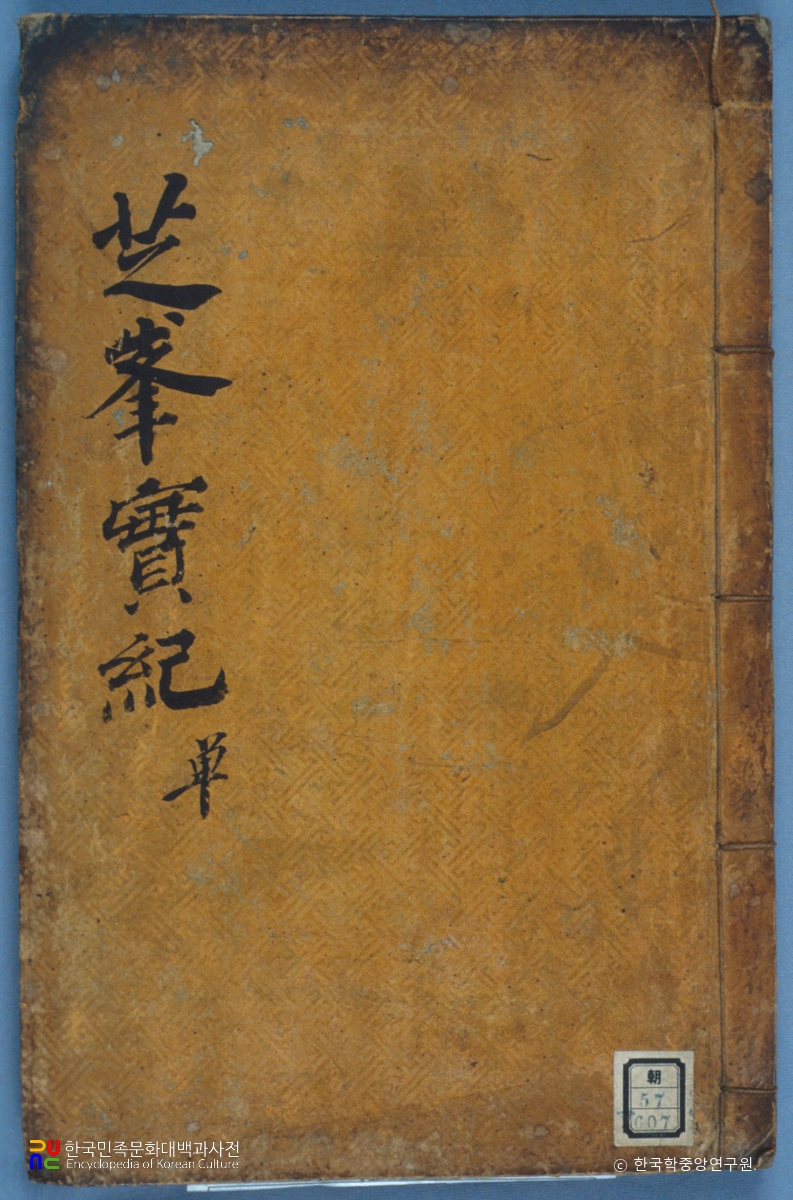 芝峯實紀 単
朝
57
607
한국민족문화대백과사전
Encyclopedia of Korean Culture
© 한국학중앙연구원